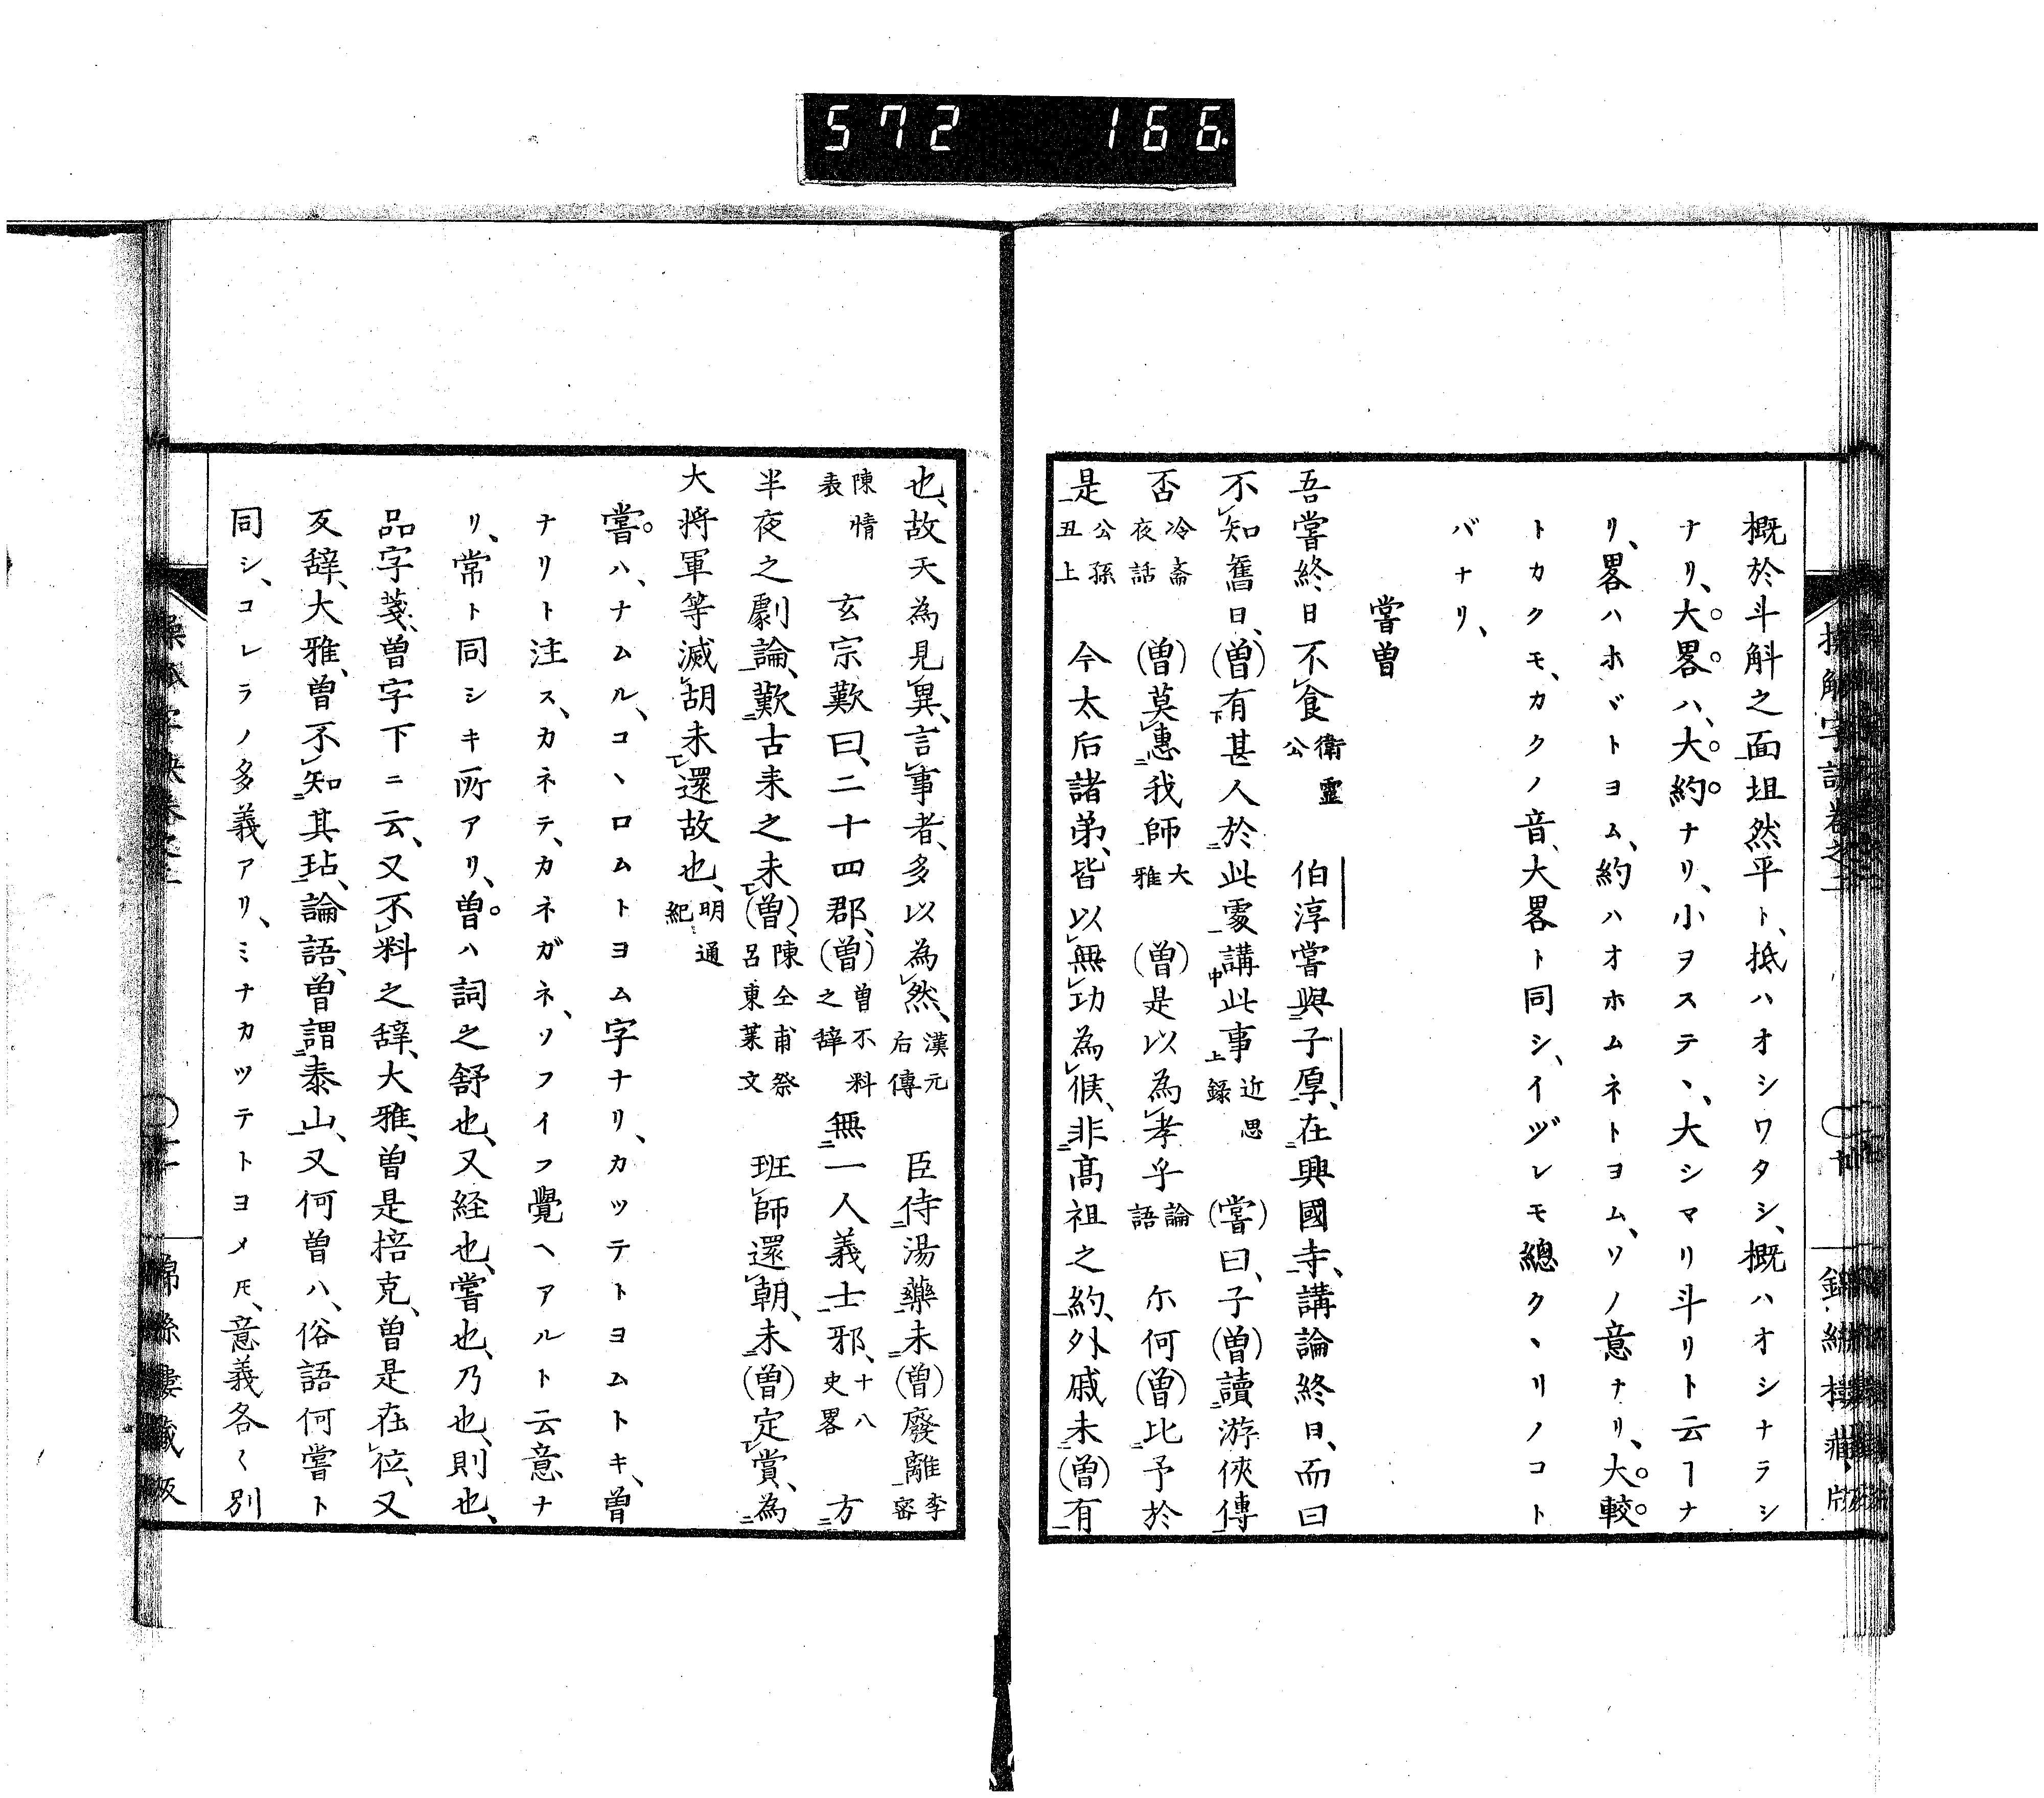 572 166
概於斗斛之面坦然平ト、抵ハオシワタシ、概ハオシナラシ
ナリ、大畧ハ、大約ナリ、小ヲステヽ、大シマリ斗リト云ヿナ
リ、畧ハホヾトヨム、約ハオホムネトヨム、ソノ意ナリ、大較
トカクモ、カクノ音、大畧ト同シ、イヅレモ總クヽリノコト
バナリ、
嘗曽
吾嘗終日不食 衛靈公 伯淳嘗與子厚、在興國寺、講論終日、而曰
不知舊日、(曽)有甚人於此處講此事 近思録 (嘗)曰、子(曽)讀游俠傳
否 冷斎夜話 (曽)莫惠我師 大雅 (曽)是以為孝乎 論語 尓何(曽)比予於
是 公孫丑上 今太后諸弟、皆以無功為侯、非高祖之約、外戚未(曽)有
也、故天為見異、言事者、多以為然、漢元后傳 臣侍湯藥、未(曽)廢離 李密
陳情表 玄宗歎曰、二十四郡、(曽) 曽不料之辞 無一人義士邪、十八史畧 方
半夜之劇論、歎古来之未(曽)、陳仝甫祭呂東莱文 班師還朝、未(曽)定賞、為
大将軍等滅胡未還故也、明通紀
嘗ハ、ナムル、コヽロムトヨム字ナリ、カツテトヨムトキ、曽
ナリト注ス、カネテ、カネガネ、ソフイフ覺ヘアルト云意ナ
リ、常ト同シキ所アリ、曽ハ詞之舒也、又経也、嘗也、乃也、則也、
品字箋、曽字下ニ云、又不料之辞、大雅、曽是掊克、曽是在位、又
反辞、大雅、曽不知其玷、論語、曽謂泰山、又何曽ハ、俗語何嘗ト
同シ、コレラノ多義アリ、ミナカツテトヨメ𪜈、意義各〻別
錦絲樓蔵板